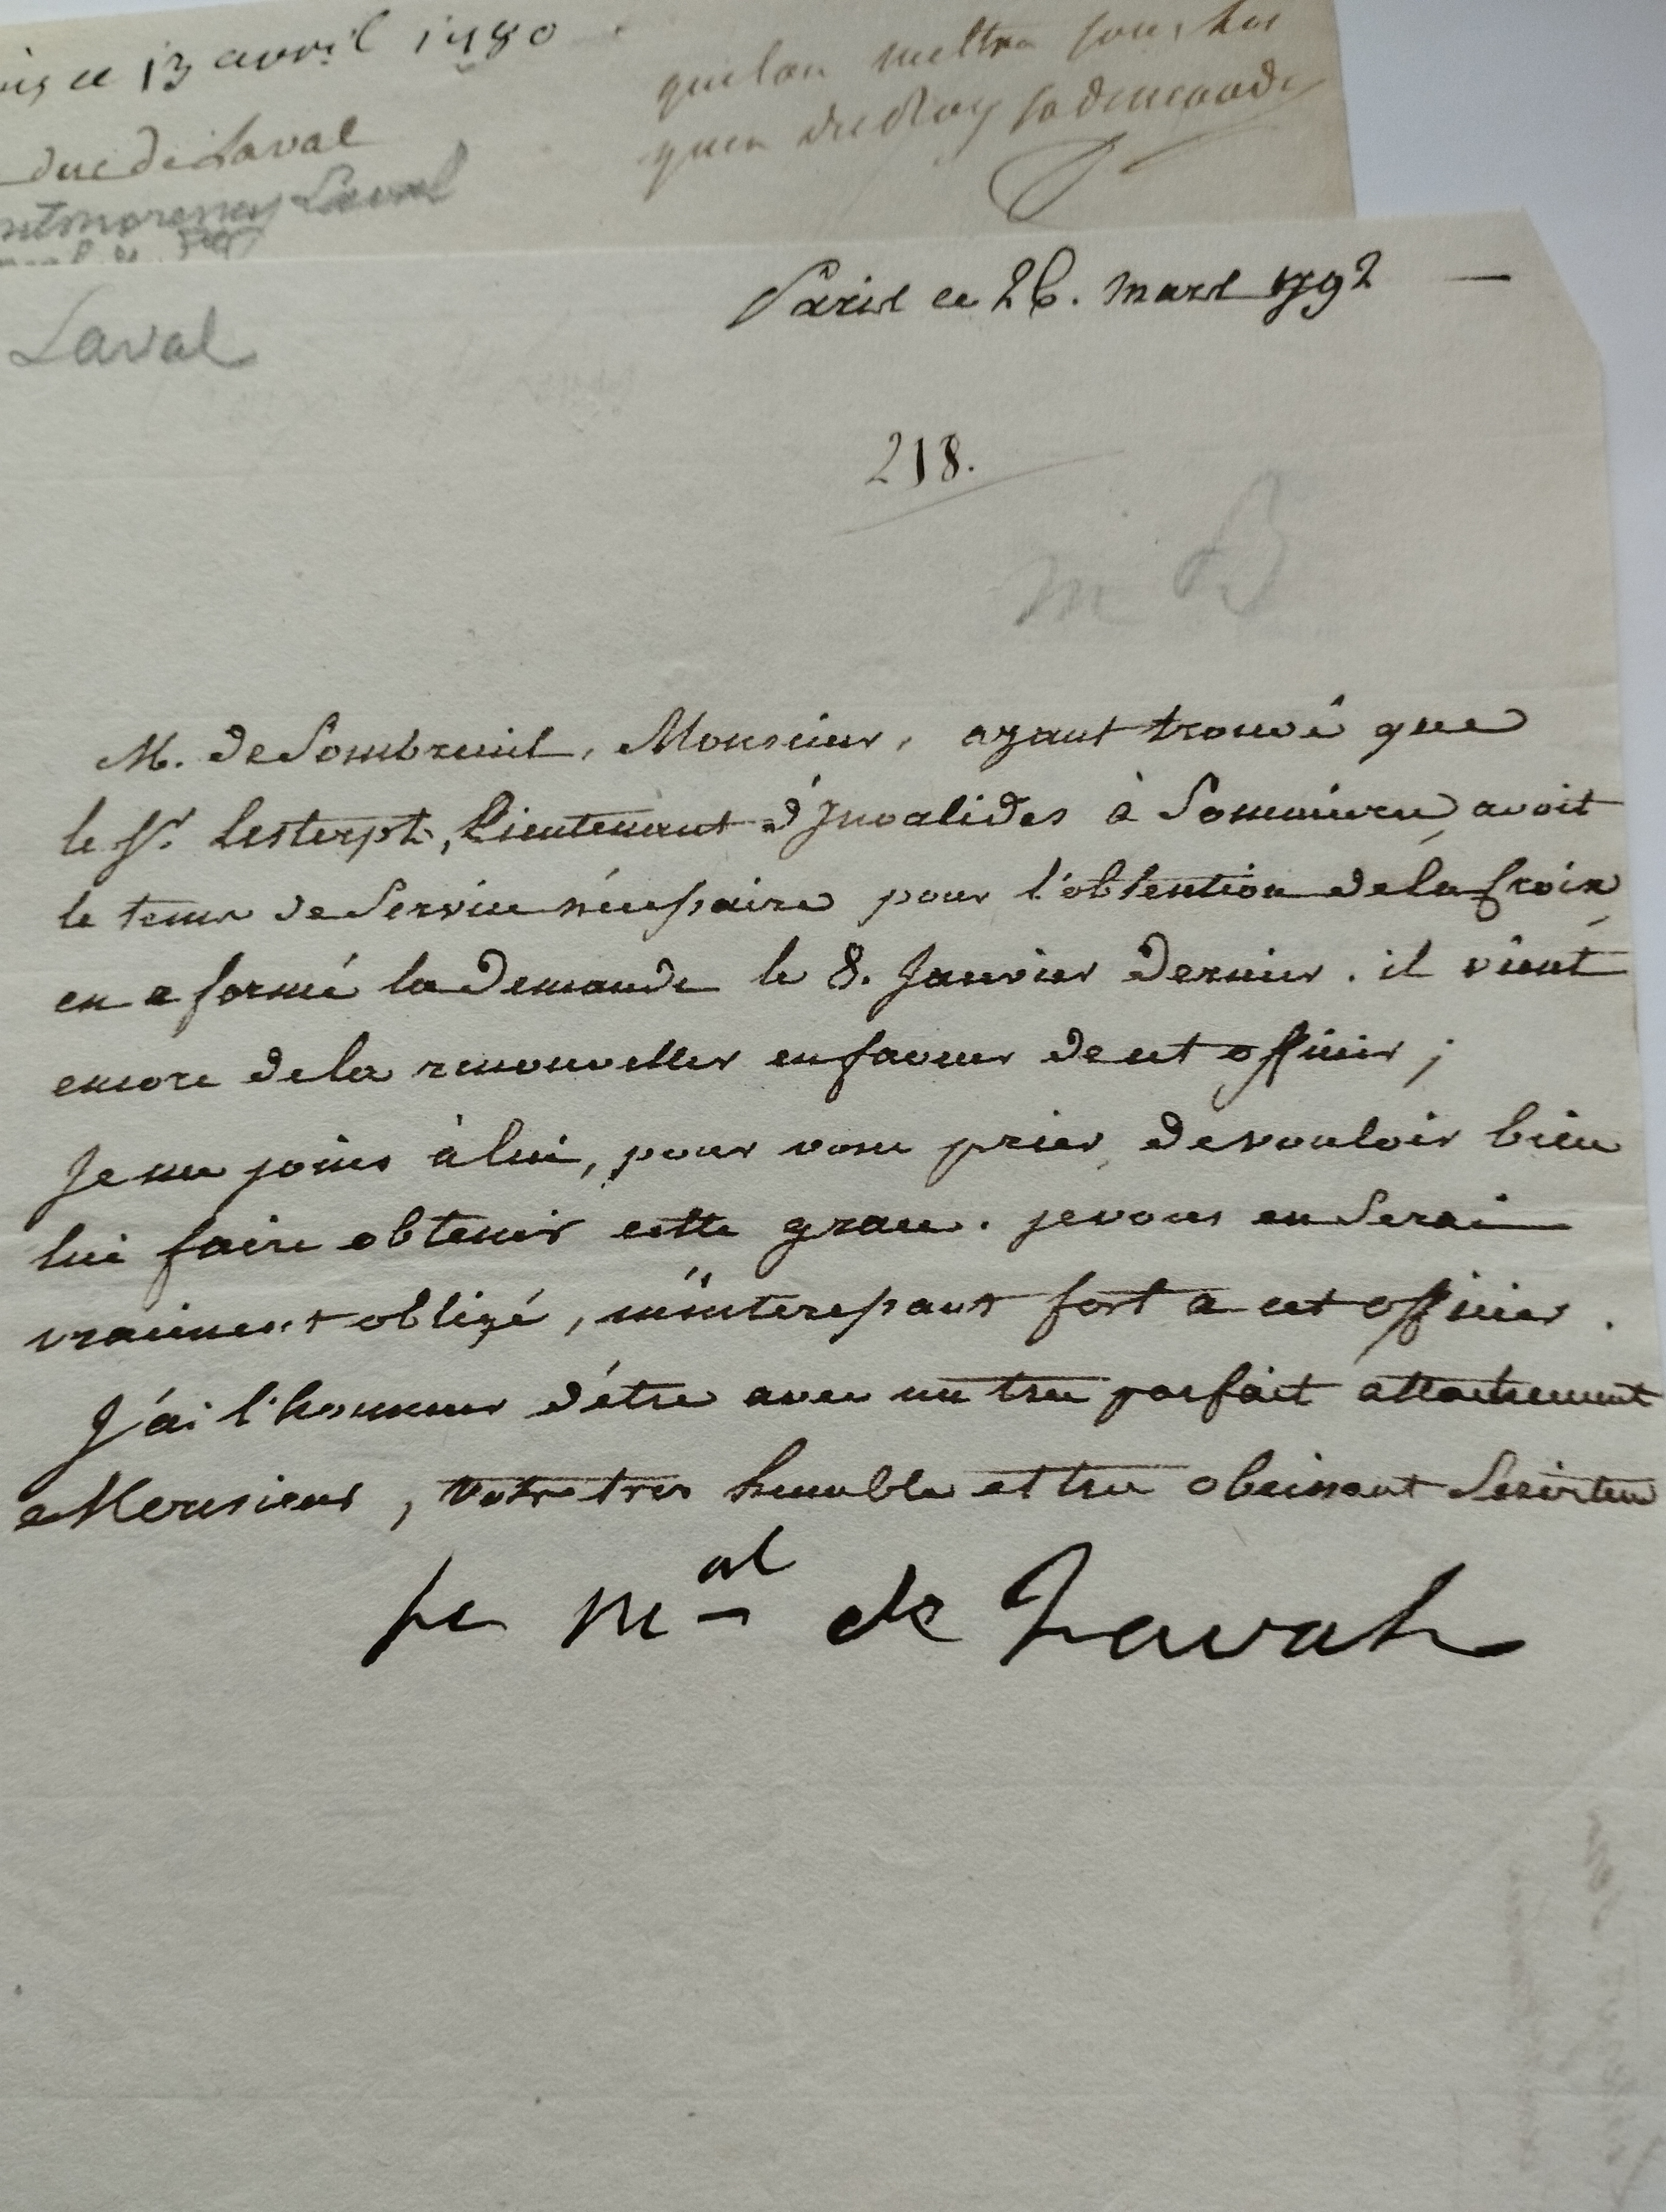 ce 13 avril 1780
duc de Laval
Laval
que lon mettra sous les
la demande
Laval
Paris ce 26. mars 1792
218.
m B
M. de Sombreuil, Monsieur, ayant trouvé que
le Sr. Lesterpt, Lieutenant d'Invalides à Sommieres, avoit
le tems de Service nécessaire pour l'obtention de la Croix
en a formé la demande le 8. Janvier dernier. il vient
encore de la renouveller en faveur de cet officier ;
Je me joins à lui, pour vous prier, de vouloir bien
lui faire obtenir cette grace. je vous en Serai
vraiment obligé, m'interessant fort a cet officier.
J'ai l'honneur d'être avec un tres parfait attachement
Monsieur, votre tres humble et tres obeissant Serviteur
Le Mal de Laval